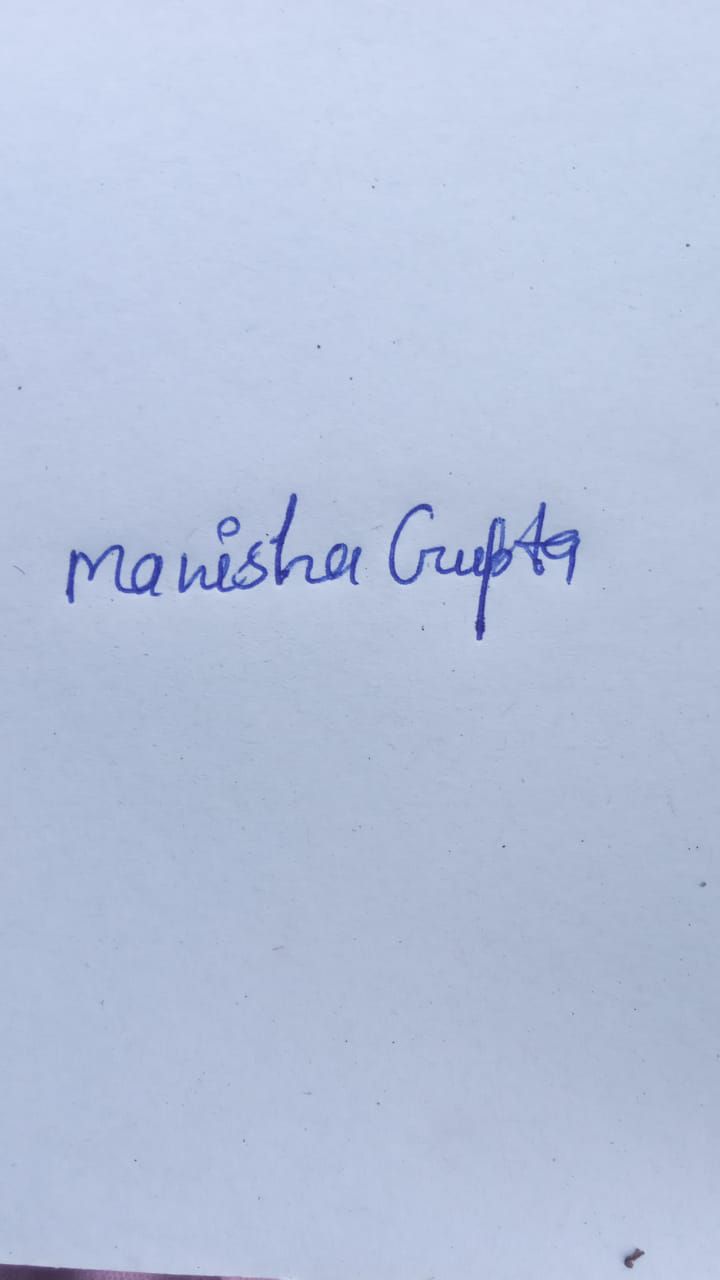 Manisha Gupta